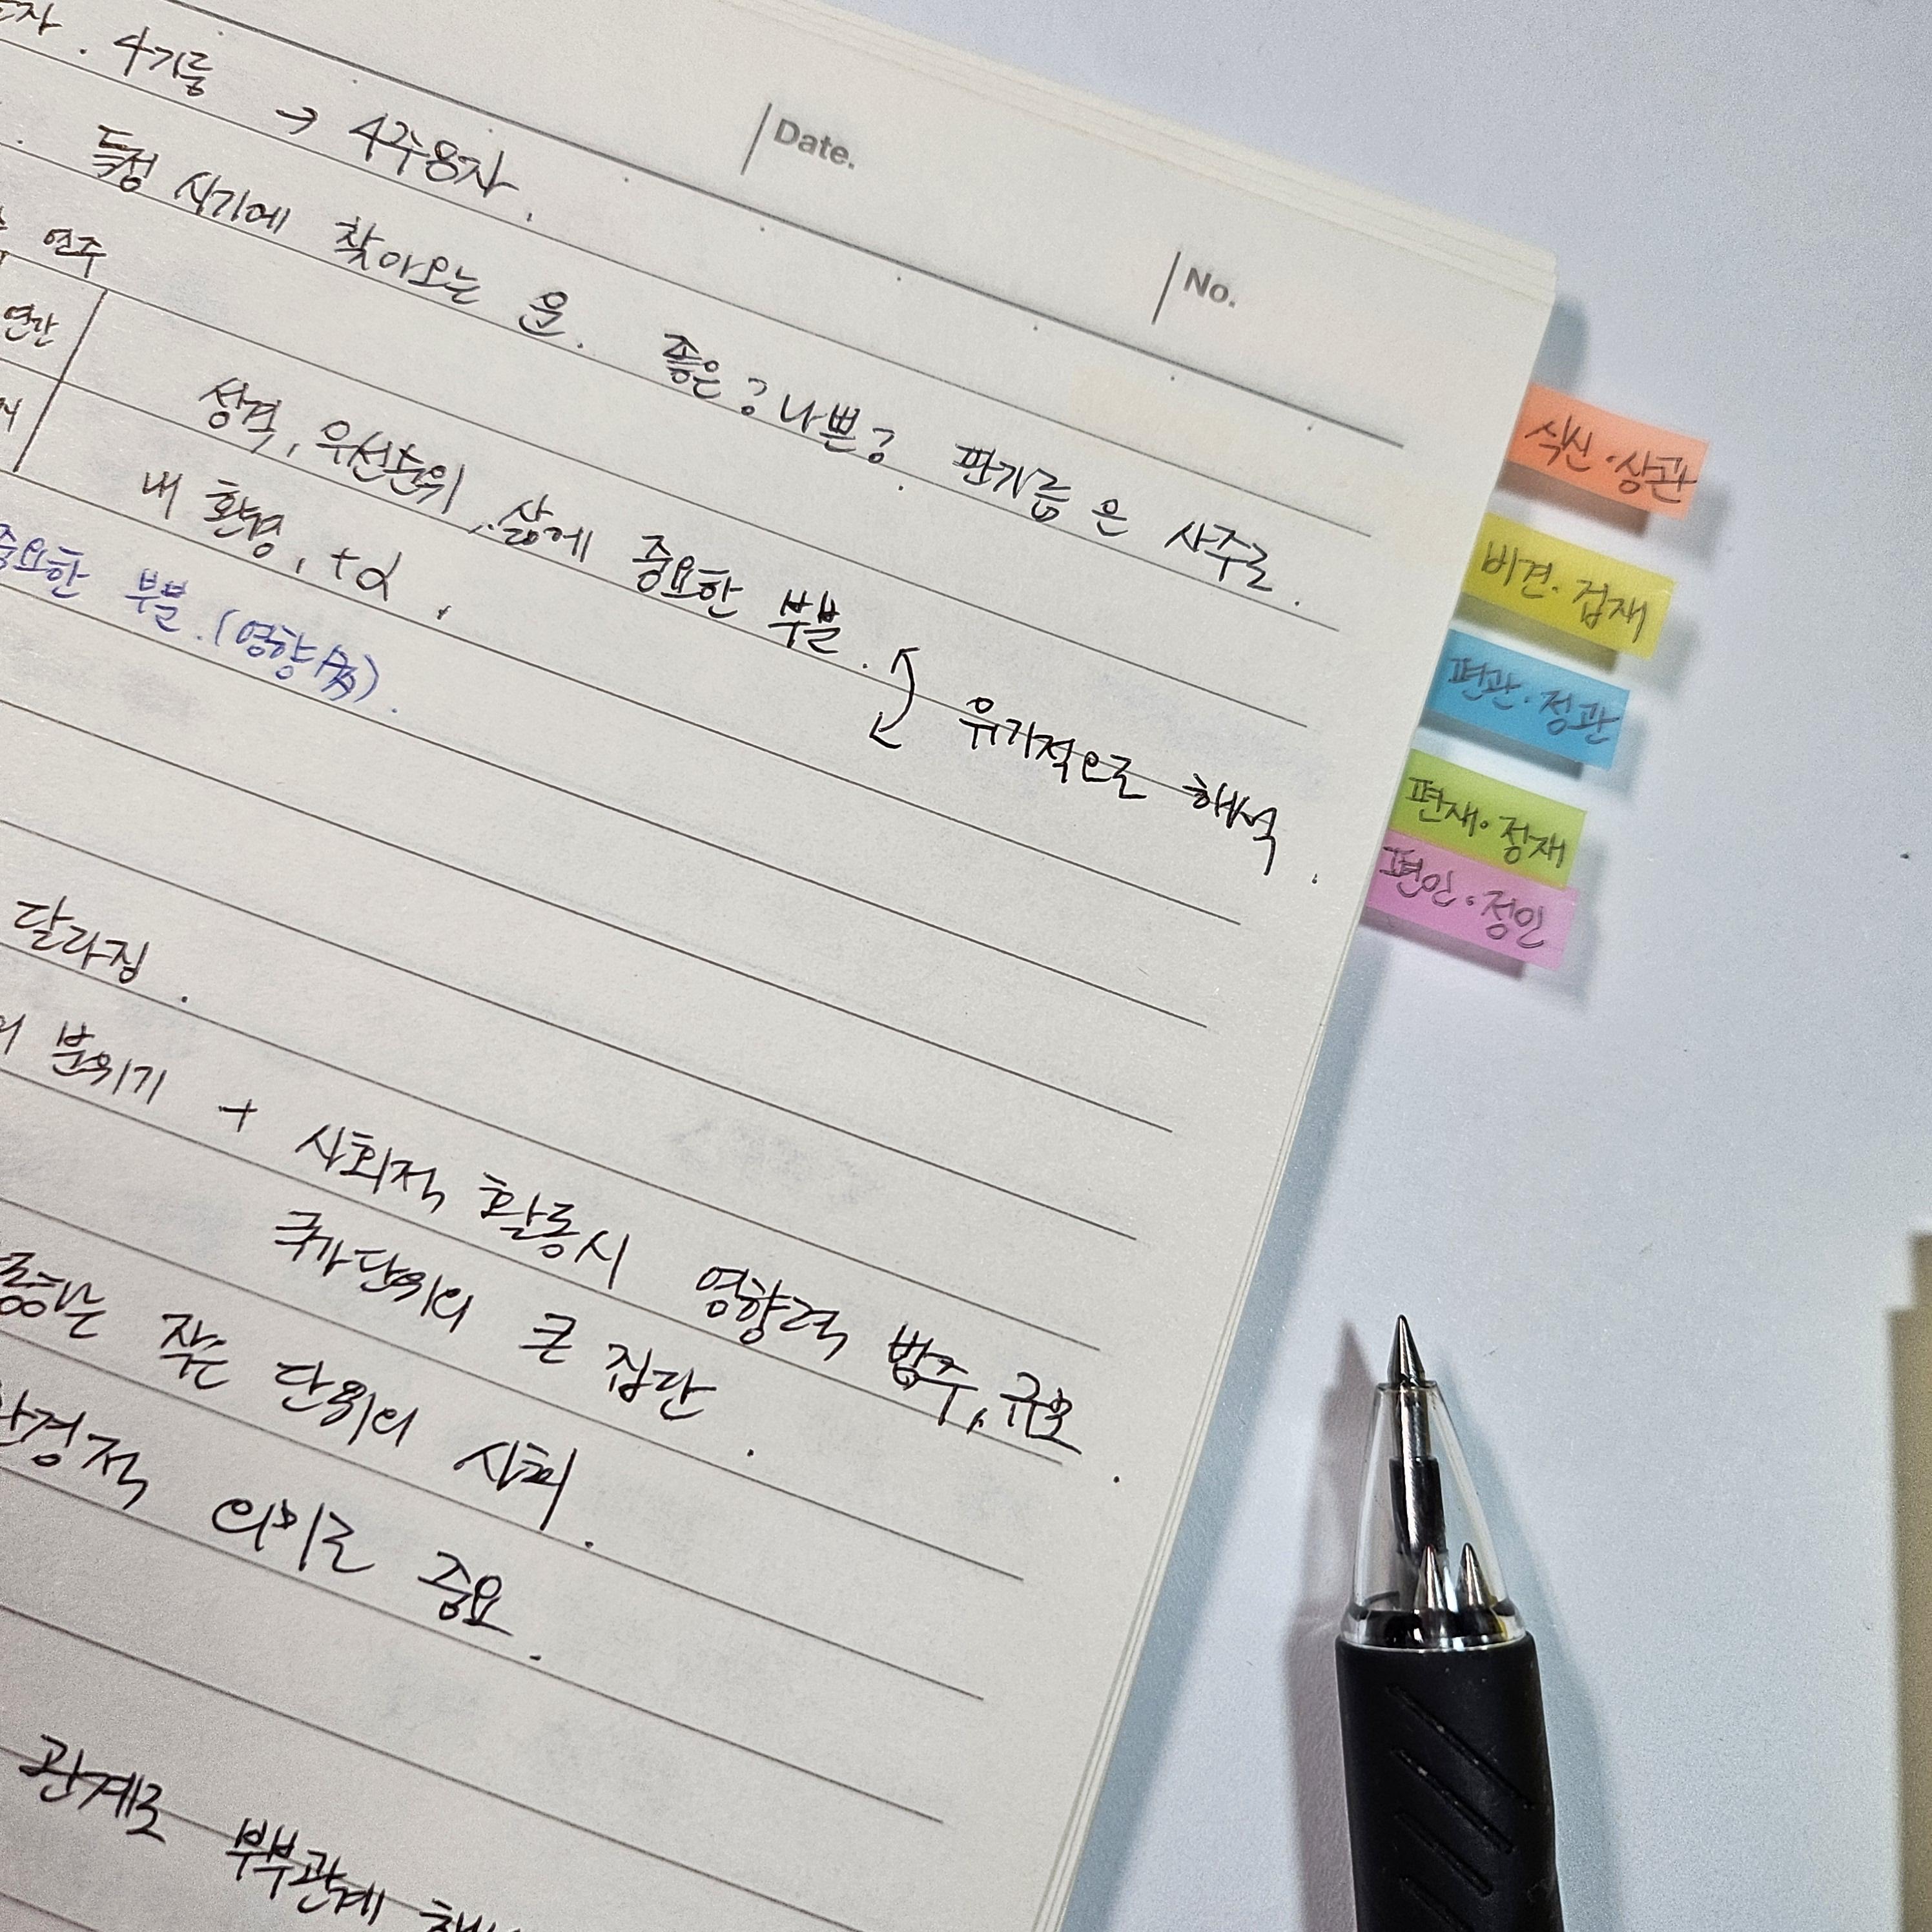 Date.
No.
4기둥 → 4주8자.
특정 시기에 찾아오는 운. 좋은? 나쁜? 판가름은 사주로.
연주
연간
성격, 우선순위, 삶에 중요한 부분.
내 환경, +α.
유기적으로 해석.
중요한 부분. (영향多).
달라짐.
분위기 + 사회적 활동시 영향력 범주, 규모.
국가단위의 큰 집단.
작은 단위의 사회.
의미로 중요.
관계로 부부관계
식신·상관
비견·겁재
편관·정관
편재·정재
편인·정인